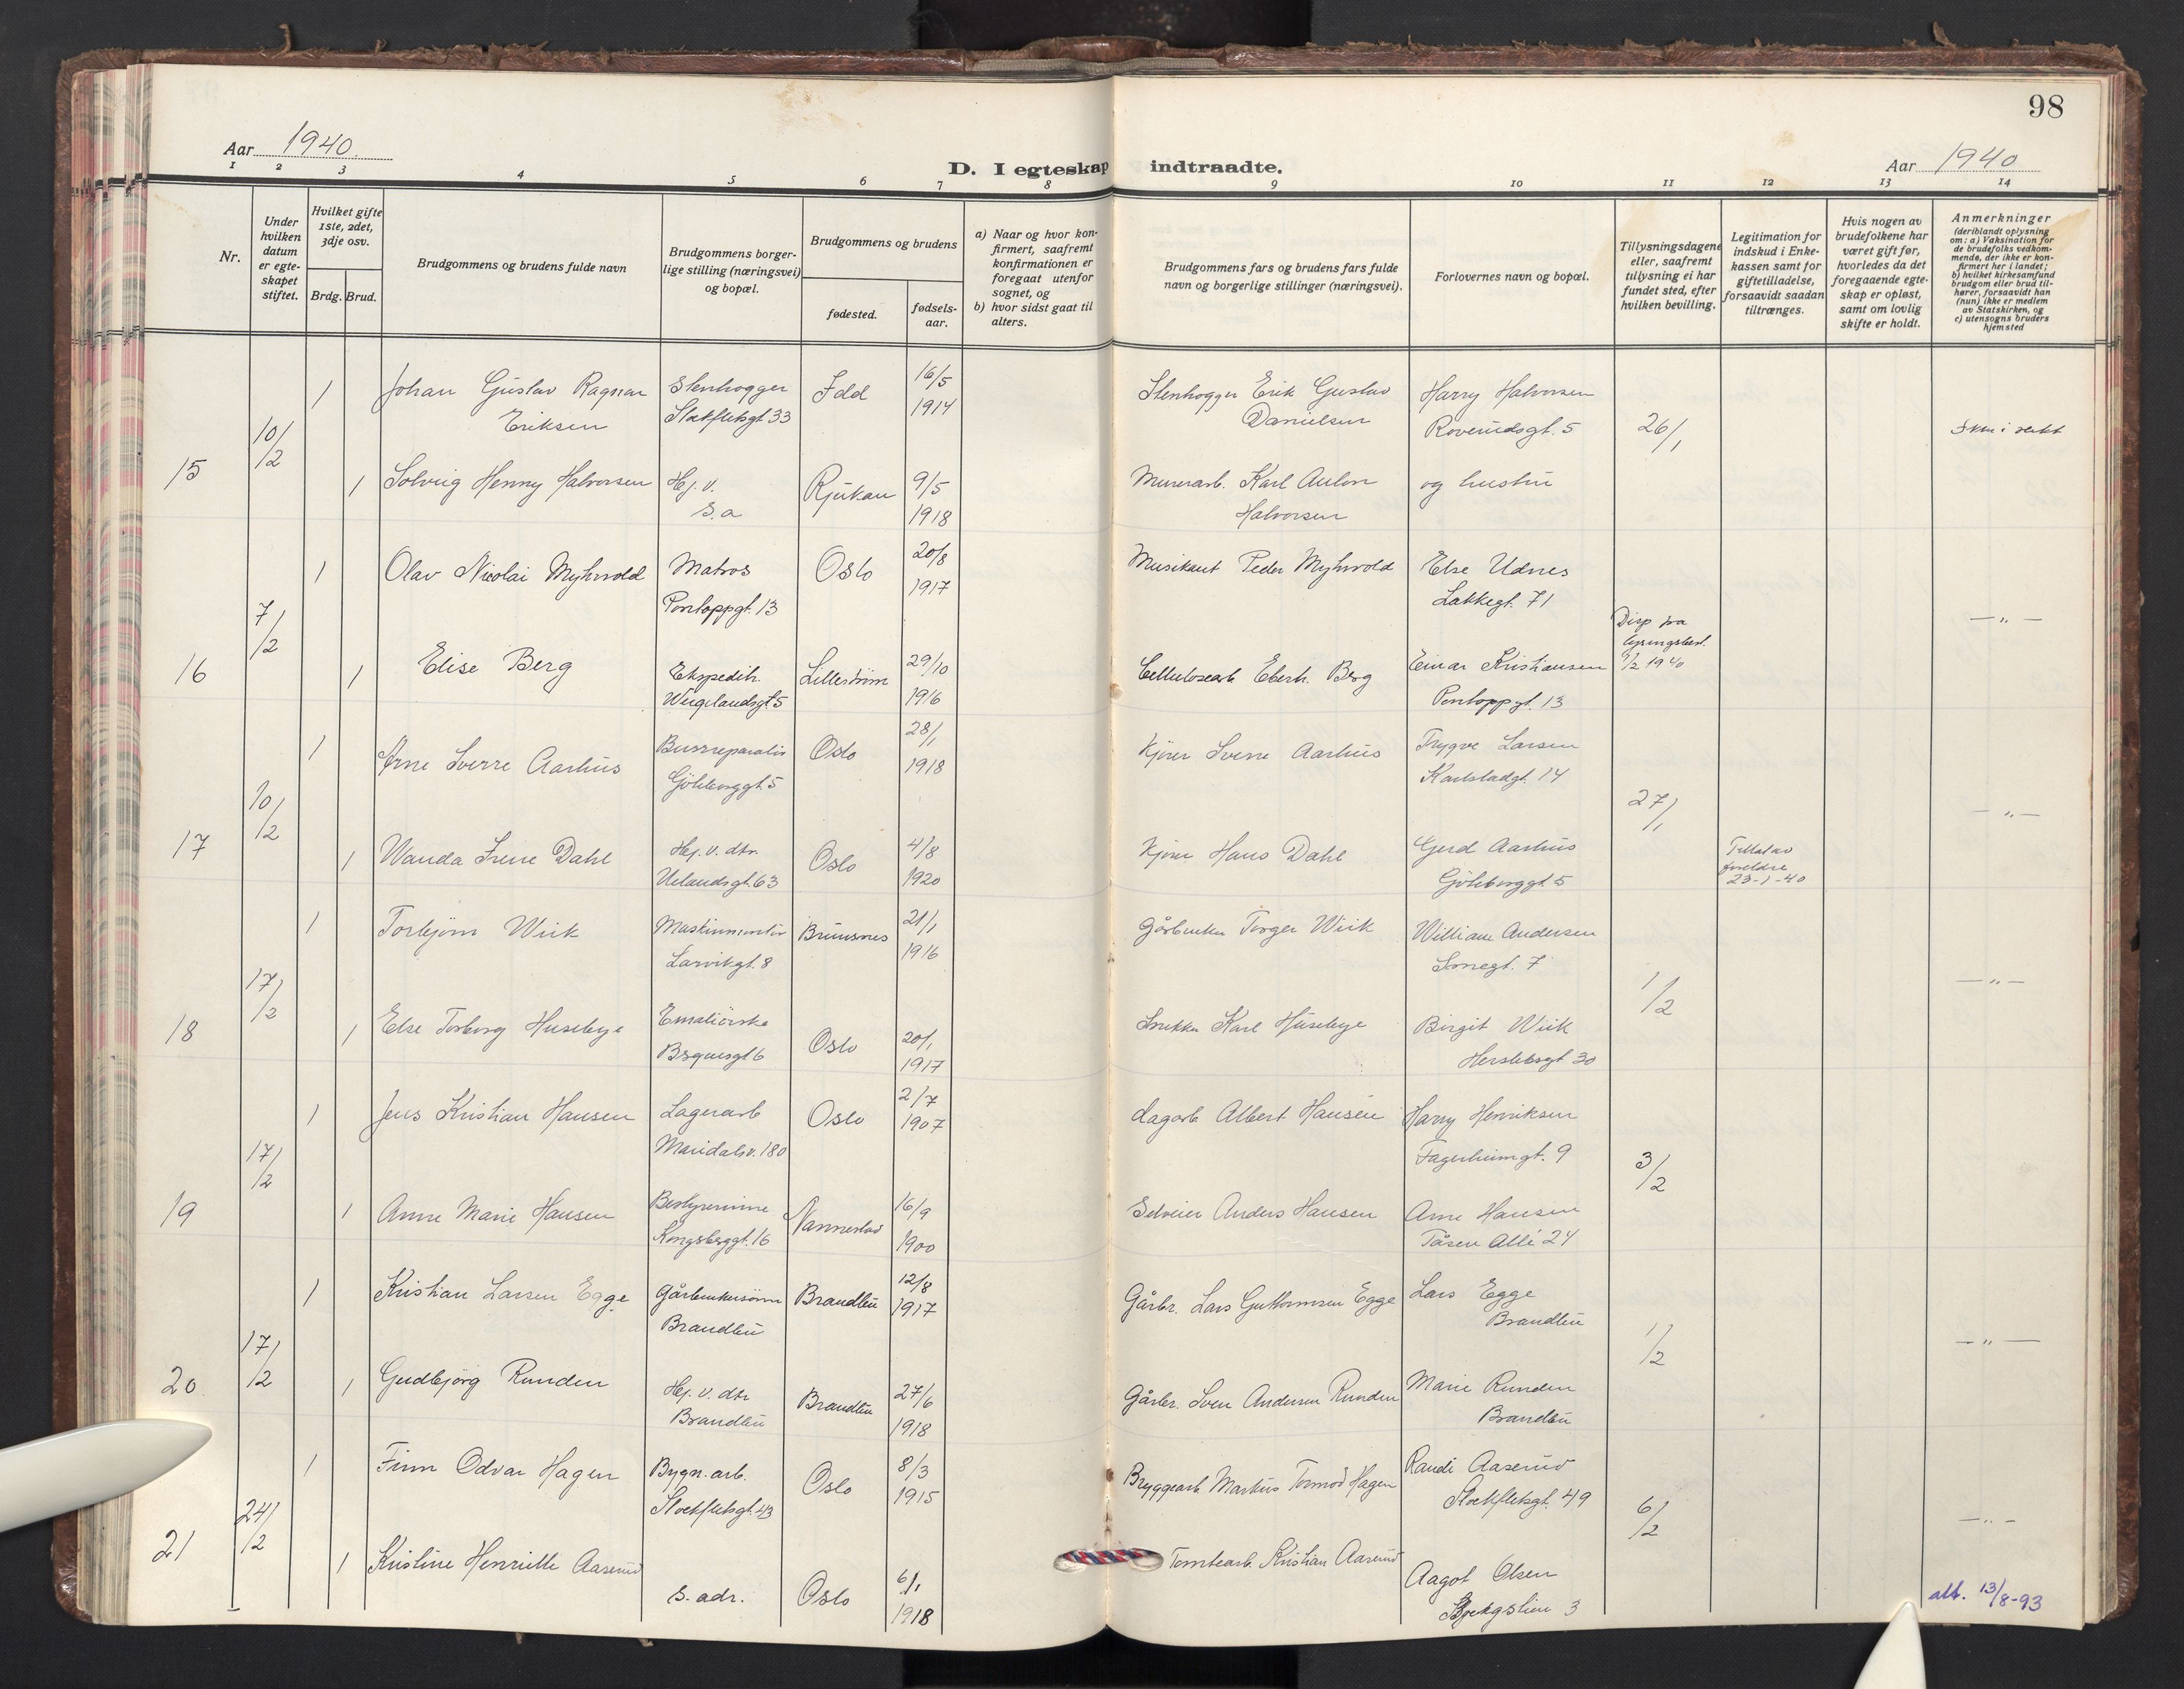 98
Aar 1940.
D. I egteskap indtraadte.
Aar 1940
1 2 3 4 5 6 7 8 9 10 11 12 13 14
Nr.
Under hvilken datum er egteskapet stiftet.
Hvilket gifte 1ste, 2det, 3dje osv.
Brdg. Brud.
Brudgommens og brudens fulde navn
Brudgommens borgerlige stilling (næringsvei) og bopæl.
Brudgommens og brudens
fødested.
fødselsaar.
a) Naar og hvor konfirmert, saafremt konfirmationen er foregaat utenfor sognet, og
b) hvor sidst gaat til alters.
Brudgommens fars og brudens fars fulde navn og borgerlige stillinger (næringsvei).
Forlovernes navn og bopæl.
Tillysningsdagene eller, saafremt tillysning ei har fundet sted, efter hvilken bevilling.
Legitimation for indskud i Enkekassen samt for giftetilladelse, forsaavidt saadan tiltrænges.
Hvis nogen av brudefolkene har været gift før, hvorledes da det foregaaende egteskap er opløst, samt om lovlig skifte er holdt.
Anmerkninger (deriblandt oplysning om: a) Vaksination for de brudefolks vedkommende, der ikke er konfirmert her i landet; b) hvilket kirkesamfund brudgom eller brud tilhører, forsaavidt han (hun) ikke er medlem av Statskirken, og c) utensogns bruders hjemsted
15 10/2
1 Johan Gustav Ragnar Eriksen Stenhogger Stokfletsgt 33 Idd 16/5 1914 Stenhogger Erik Gustav Danielsen Harry Halvorsen Roverudsgt. 5 26/1
1 Solveig Henny Halvorsen Hj. v. S. a Rjukan 9/5 1918 Murerarb. Karl Anton Halvorsen og hustru
16 7/2
1 Olav Nicolai Myhrvold Matros Pontoppgt. 13 Oslo 20/8 1917 Musikant Peder Myhrvold Else Udnes Lakkegt. 71 Disp fra 1940 — " —
1 Elise Berg Ekspeditr. Wergelandsgt 5 Lillestrøm 29/10 1916 Cellulosearb Eberh. Berg Einar Kristiansen Pontoppgt. 13
17 10/2
1 Arne Sverre Aarhus Bussreparatør Göteborggt. 5 Oslo 28/1 1918 Kjører Sverre Aarhus Trygve Larsen Karlstadgt. 14 27/1 — " —
1 Wanda Irene Dahl Hj. v. dtr. Uelandsgt. 63 Oslo 4/8 1920 Kjører Hans Dahl Gerd Aarhus Göteborggt. 5 foreldre 23-1-40
18 17/2
1 Torbjørn Wiik Maskinmontør Larvikgt. 8 21/1 1916 Gårbruker Torger Wiik William Andersen 1/2 — " —
1 Else Torborg Husebye Oslo 20/1 1917 Snekker Karl Husebye Birgit Wiik Herslebsgt 30
19 17/2
1 Jens Kristian Hansen Lagerarb Maridalsv. 180 Oslo 2/7 1907 Lagarb Albert Hansen Harry Henriksen Fagerheimgt. 9 3/2
1 Anne Marie Hansen Bestyrerinne Kongsberggt. 16 Nannestad 16/9 1900 Selveier Anders Hansen Arne Hansen Tåsen Allé 24
20 17/2
1 Kristian Larsen Egge Gårbrukersønn Brandbu Brandbu 12/8 1917 Gårbr. Lars Guttormsen Egge Lars Egge Brandbu 1/2 — " —
1 Gudbjørg Runden Hj. v. dtr Brandbu Brandbu 27/6 1918 Gårbr. Sven Andersen Runden Marie Runden Brandbu
21 24/2
1 Finn Odvar Hagen Bygn. arb. Stockfletsgt. 43 Oslo 8/3 1915 Bryggearb Markus Tormod Hagen Randi Aaserud Stockfletsgt. 49 6/2 — " —
1 Kristine Henriette Aaserud s. adr. Oslo 6/1 1918 Tomtearb. Kristian Aaserud Aagot Olsen 3
att. 13/8-93